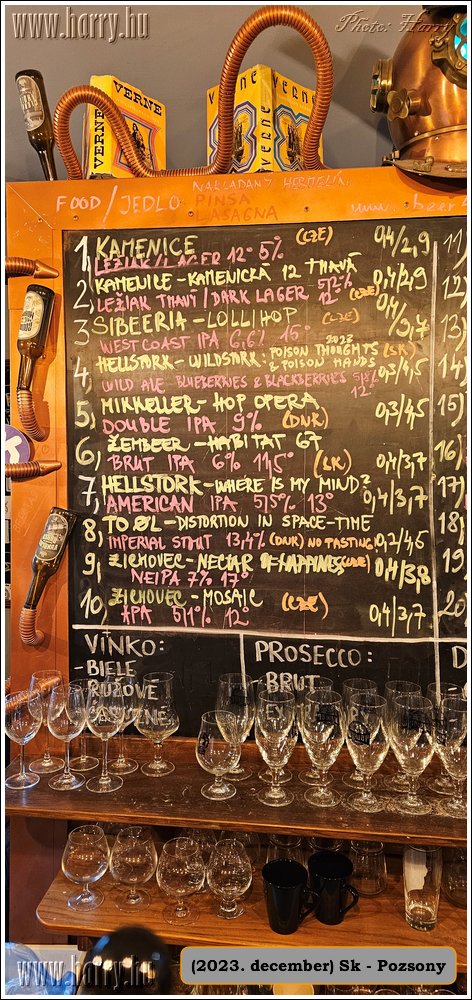 www.harry.hu
Photo: Harry
VERNE
VERNE
VERNE
VERNE
FOOD/JEDLO
NAKLADANÝ HERMELÍN
PINSA
LASAGNA
1, KAMENICE (CZE) 0,4/2,9
LEŽIAK/LAGER 12° 5%
2, KAMENICE-KAMENICKÁ 12 TMAVÁ 0,4/2,9
LEŽIAK TMAVÝ/DARK LAGER 5,2% 12° (CZE)
3, SIBEERIA-LOLLIHOP (CZE) 0,4/3,7
WEST COAST IPA 6,6% 15°
4, HELLSTORK-WILDSTORK: POISON THOUGHTS 2023 & POISON HANDS (SK) 0,3/4,5
WILD ALE BLUEBERRIES & BLACKBERRIES 5,8% 12°
5, MIKKELLER-HOP OPERA 0,3/4,5
DOUBLE IPA 9% (DNK)
6, ŽEMBEER-HABITAT 67 0,4/3,7
BRUT IPA 6% 11,5° (SK)
7, HELLSTORK-WHERE IS MY MIND? 0,4/3,7
AMERICAN IPA 5,5% 13°
8, TO ØL-DISTORTION IN SPACE-TIME
IMPERIAL STOUT 13,4% (DNK) NO TASTING! 0,2/4,5
9, ZICHOVEC-NECTAR OF HAPPINESS (CZE) 0,4/3,8
NEIPA 7% 17°
10, ZICHOVEC-MOSAIC (CZE) 0,4/3,7
APA 5,1% 12°
11,
12,
13,
14,
15,
16,
17,
18,
19,
20,
VÍNKO:
-BIELE
RUŽOVÉ
PROSECCO:
-BRUT
www.harry.hu
(2023. december) Sk - Pozsony